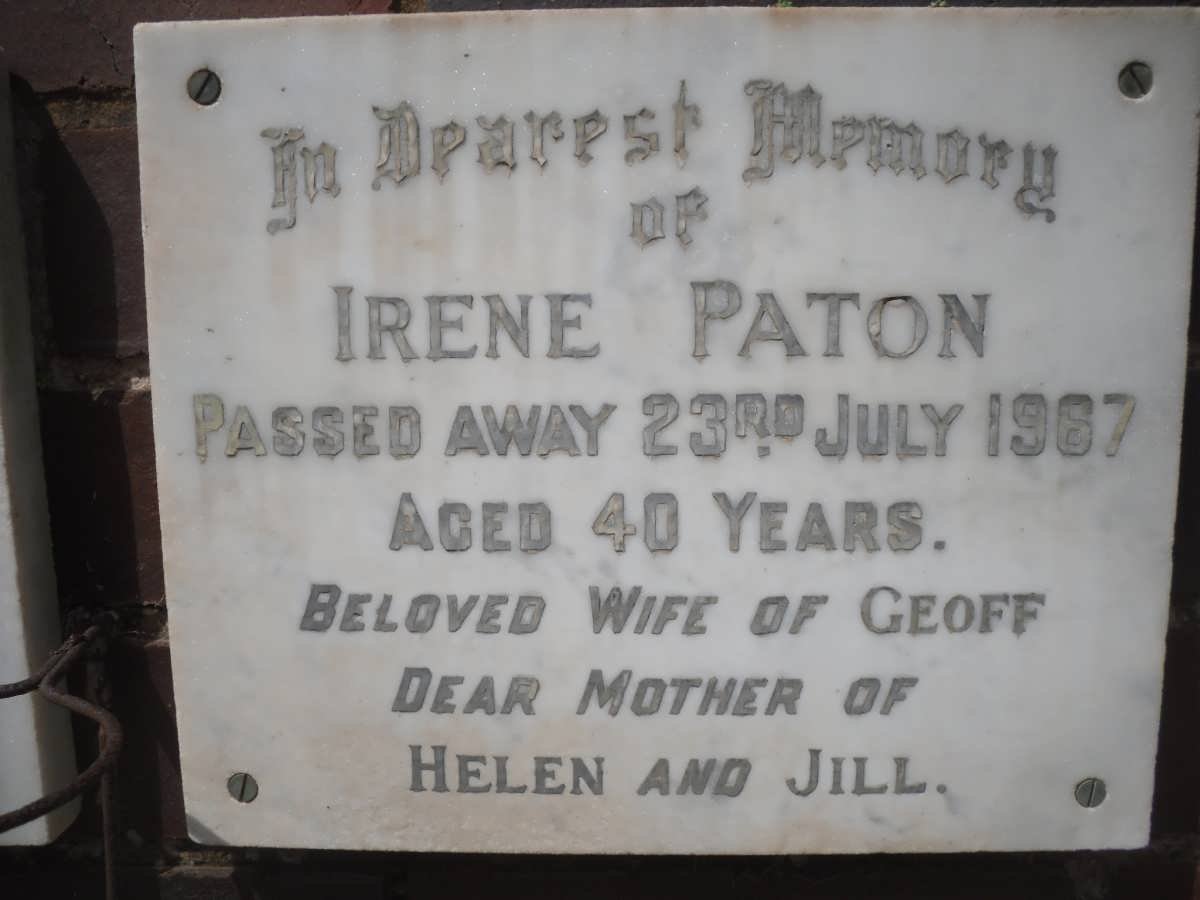 In Dearest Memory
of
IRENE PATON
PASSED AWAY 23RD. JULY 1967
AGED 40 YEARS.
BELOVED WIFE OF GEOFF
DEAR MOTHER OF
HELEN AND JILL.